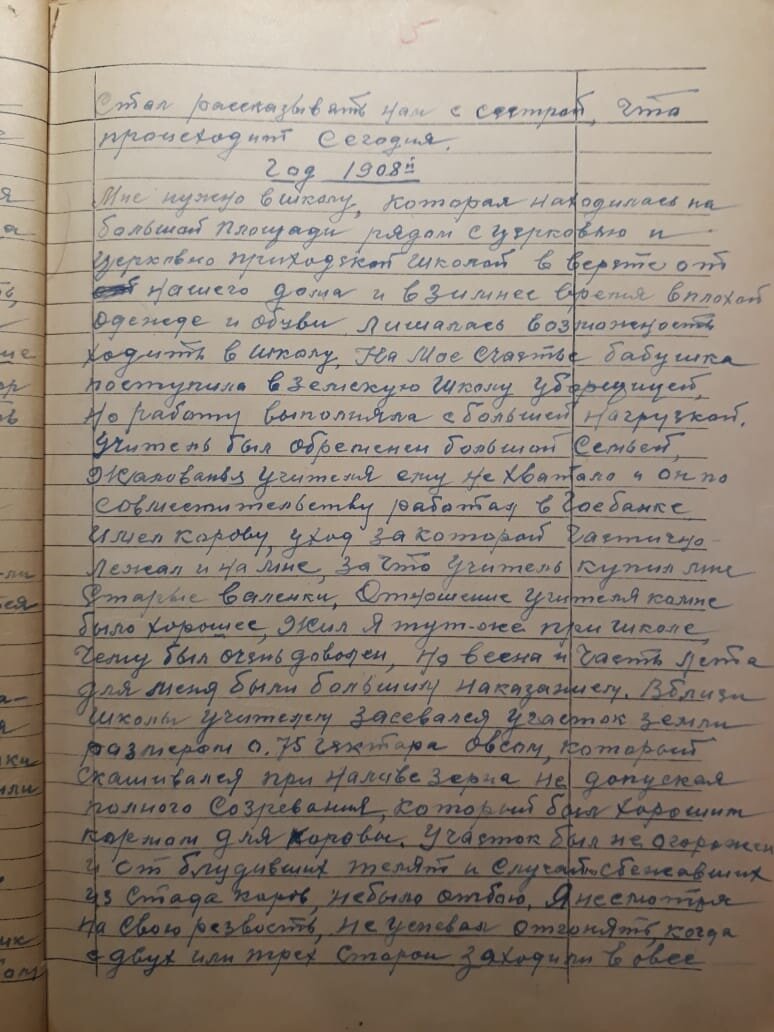 5
Стал рассказывать нам с сестрой, что
происходит сегодня.
Год 1908й
Мне нужно в школу, которая находилась на
большой площади рядом с церковью и
церковно приходской школой в версте от
нашего дома и в зимнее время в плохой
одежде и обуви лишалась возможность
ходить в школу. На мое счастье бабушка
поступила в земскую школу уборщицей,
но работу выполняла с большей нагрузкой.
Учитель был обременен большой семьей,
жалованья учителя ему не хватало и он по
совместительству работал в Госбанке
имел корову, уход за которой частично
лежал и на мне, за что учитель купил мне
старые валенки, Отношение учителя ко мне
было хорошее, Жил я тут-же при школе,
чему был очень доволен, но весна и часть лета
для меня были большим наказанием. Вблизи
школы учителем засевался участок земли
размером 0.75 гектара овсом, который
скашивался при наливе зерна не допуская
полного созревания, который был хорошим
кормом для коровы. Участок был не огорожен
и от блудивших телят и случайно сбежавших
из стада коров, небыло отбою, Я несмотря
на свою резвость, не успевал отгонять, когда
с двух или трех сторон заходили в овес